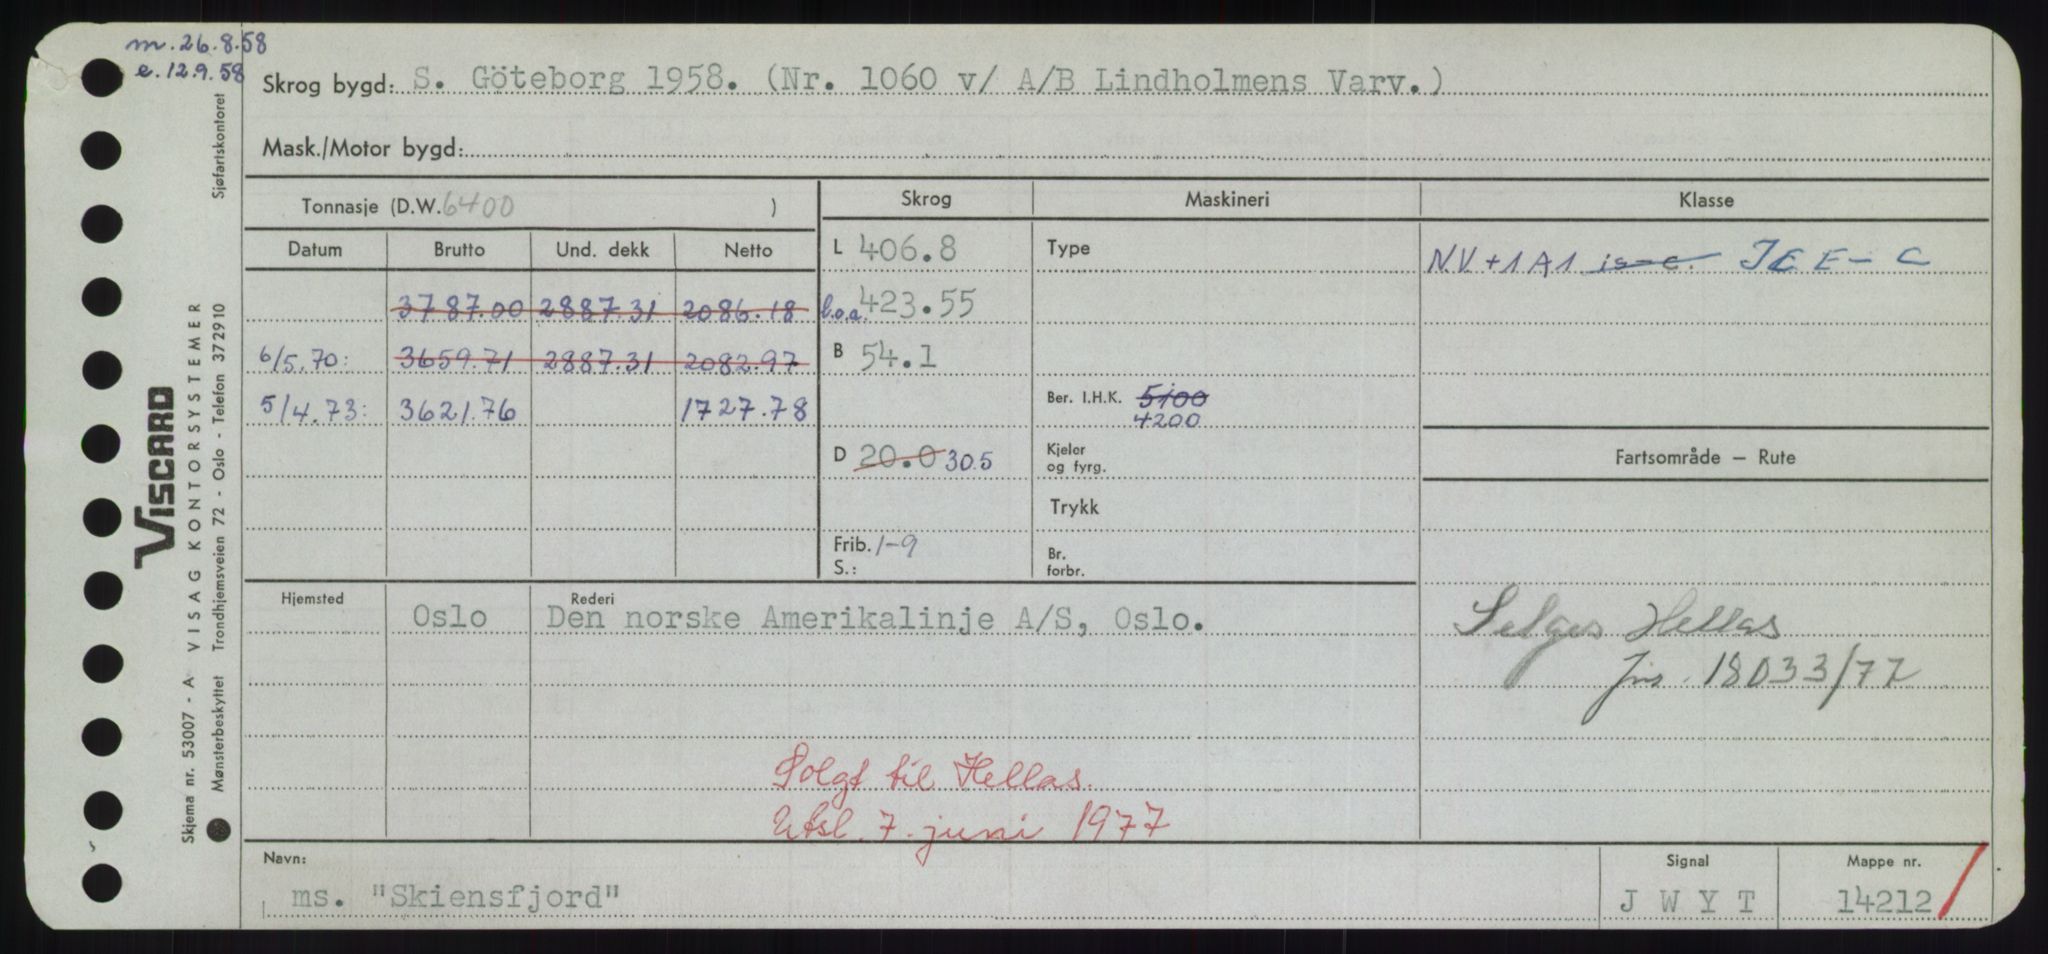 m. 26.8.58
e. 12.9.58
Skrog bygd: S. Göteborg 1958. (Nr. 1060 v/ A/B Lindholmens Varv.)
Mask./Motor bygd:
Tonnasje (D.W. 6400 )
Skrog Maskineri Klasse
Datum Brutto Und. dekk Netto
L 406.8 Type NV+1A1 is-c. ICE-C
3787.00 2887.31 2086.18 l.o.a. 423.55
6/5.70: 3659.71 2887.31 2082.97 B 54.1
5/4.73: 3621.76 1727.78 Ber. I.H.K. 5100
4200
D 20.0 30.5 Kjeler og fyrg. Fartsområde – Rute
Trykk
Frib. 1-9
S.:
Br. forbr.
Hjemsted Rederi
Oslo Den norske Amerikalinje A/S, Oslo.
Selges Hellas
Jnr. 18033/77
Solgt til Hellas.
Utsl. 7. juni 1977
Navn: Signal Mappe nr.
ms. "Skiensfjord" J W Y T 14212
VISCARD
VISAG KONTORSYSTEMER
Skjema nr. 53007 - A
Mønsterbeskyttet Trondhjemsveien 72 - Oslo - Telefon 372910 Sjøfartskontoret